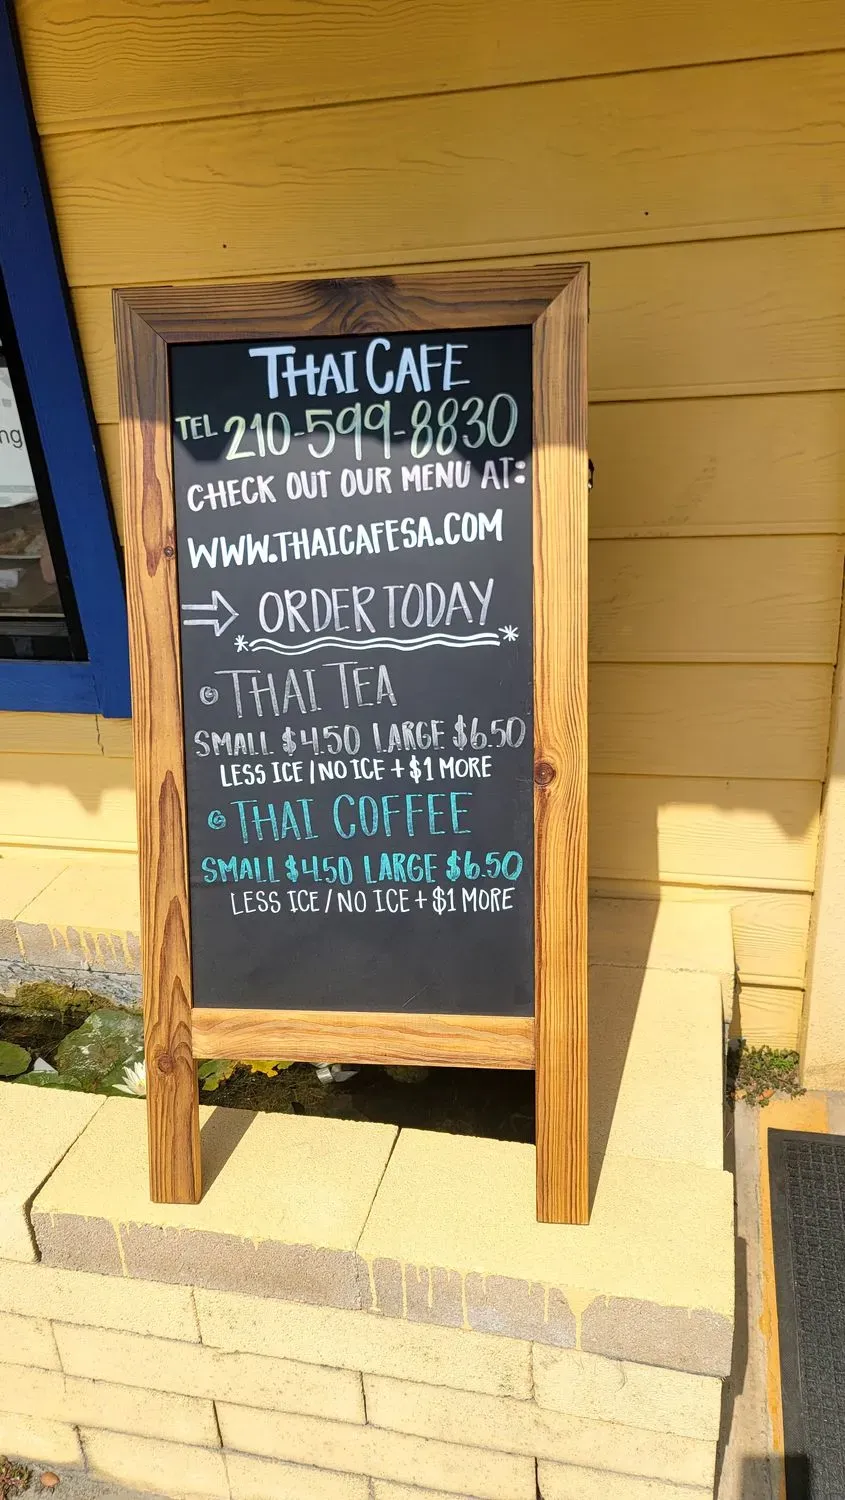 THAI CAFE
TEL 210-599-8830
CHECK OUT OUR MENU AT:
WWW.THAICAFESA.COM
⇒ ORDER TODAY
THAI TEA
SMALL $4.50 LARGE $6.50
LESS ICE / NO ICE + $1 MORE
THAI COFFEE
SMALL $4.50 LARGE $6.50
LESS ICE / NO ICE + $1 MORE